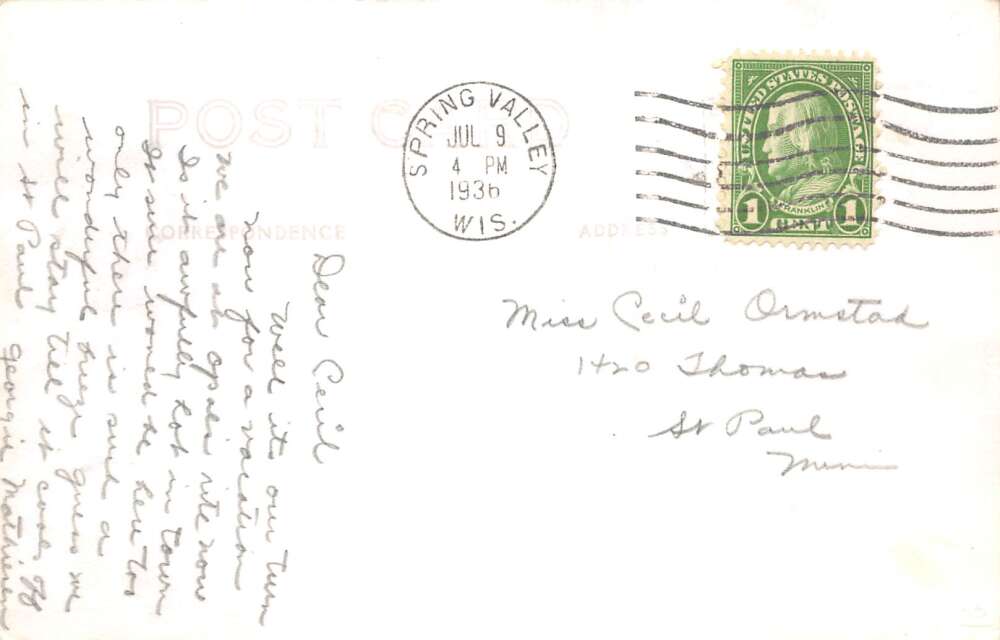 POST CARD
CORRESPONDENCE
ADDRESS
SPRING VALLEY
JUL 9
4 PM
1936
WIS.
UNITED STATES POSTAGE
FRANKLIN
1 CENT 1
Dear Cecil
Well its our turn
now for a vacation
We are at opals rite now
Is it awfully hot in town
It sure would be here too
only there is such a
wonderful breze guess we
will stay till it cools
in St Paul
Georgie Mathiesen
Miss Cecil Ormstad
1420 Thomas
St Paul
Minn